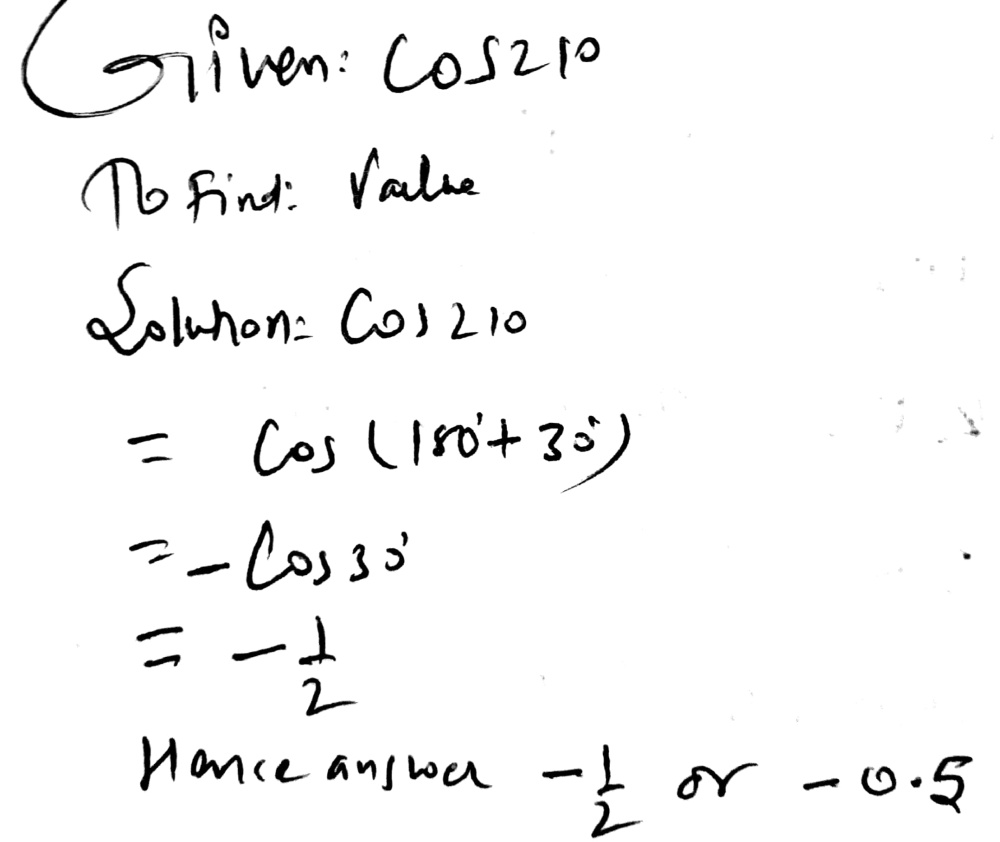 Given: Cos210
To Find: Value
Solution: Cos 210
= Cos (180°+ 30°)
= - Cos 30°
= - 1/2
Hence answer - 1/2 or - 0.5